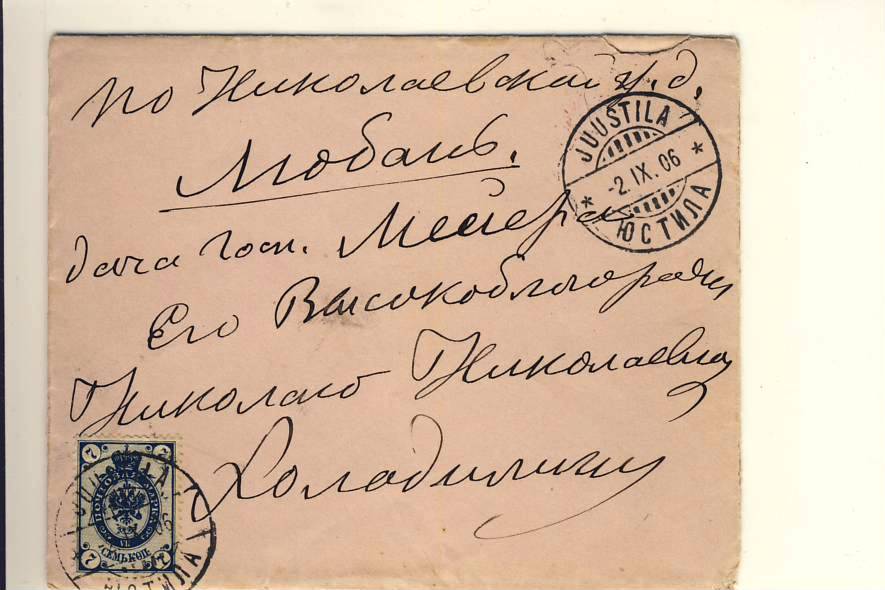 по Николаевской ж. д.
Любань.
дача госп. Мейера
Его Высокоблагородию
Николаю Николаевичу
JUUSTILA
-2.IX.06
ЮСТИЛА
7 7
ПОЧТОВАЯ МАРКА
СЕМЬ КОП.
7 7
JUUSTILA
06
ЮСТИЛА